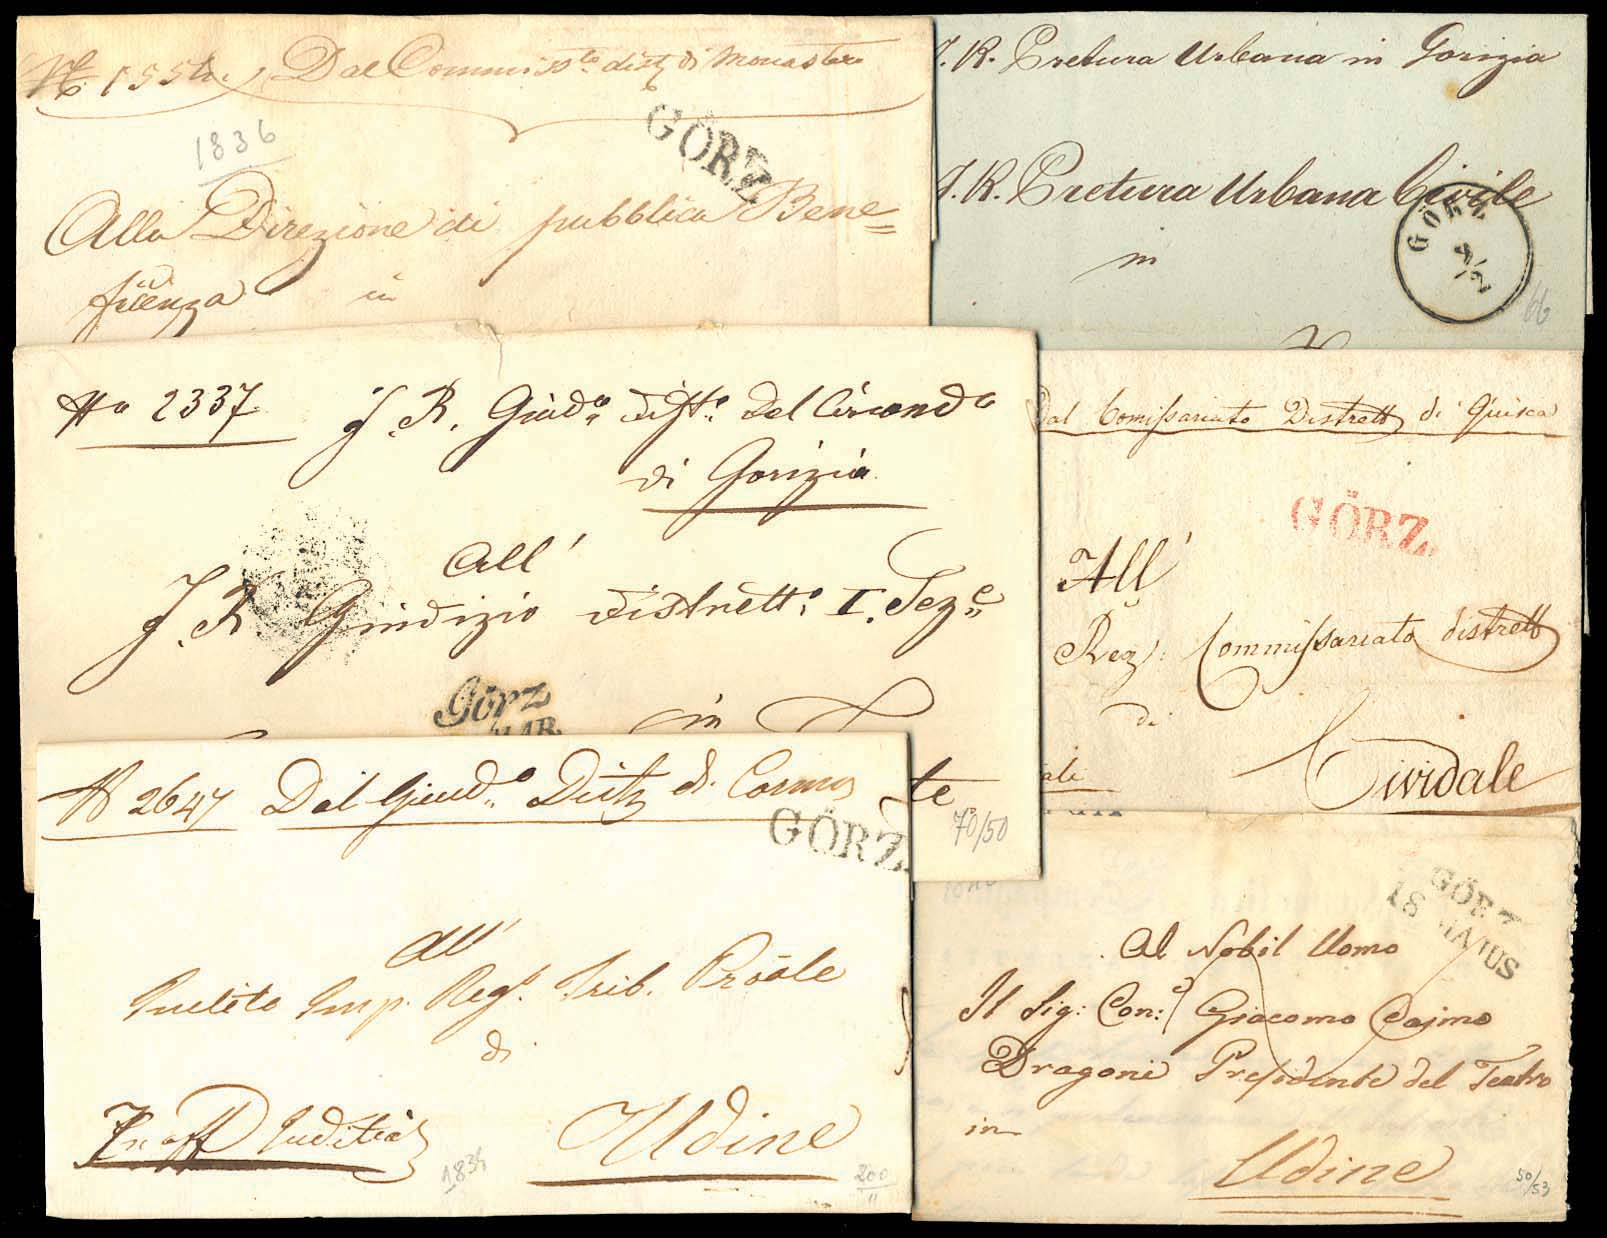 No 155
Dal Commissto distr di Monastero
1836
GÖRZ
Alla Direzione di pubblica Bene=
ficenza in
I. R. Pretura Urbana in Gorizia
I. R. Pretura Urbana Civile
in
GÖRZ
9/2
66
No 2337 I. R. Giudo distto del Circondo
di Gorizia
All'
I. R. Giudizio distretto I.Seze
Görz
MAR.
in
te
70/50
Dal Comissariato Distrett di Quisca
GÖRZ.
All'
Reg: Commissariato distrett
di
Cividale
N 2647 Dal Giudo Distr di Cormons
GÖRZ.
All'
Inclito Imp. Reg. Trib. Proale
di
Udine
1834
200
GÖRZ
18 MAIUS
Al Nobil Uomo
Il Sig: Con: Giacomo Casimo
Dragoni Presidente del Teatro
in
Udine
50/53